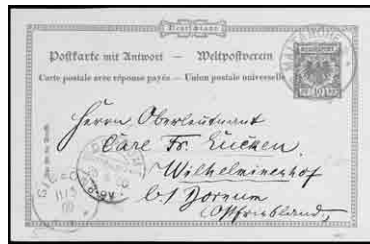 Deutschland
Postkarte mit Antwort — Weltpostverein
Carte postale avec réponse payée — Union postale universelle
Herrn Oberleutnant
Carl Fr. Eucken
Wilhelminenhof
b/ Dornum
Ostfriesland